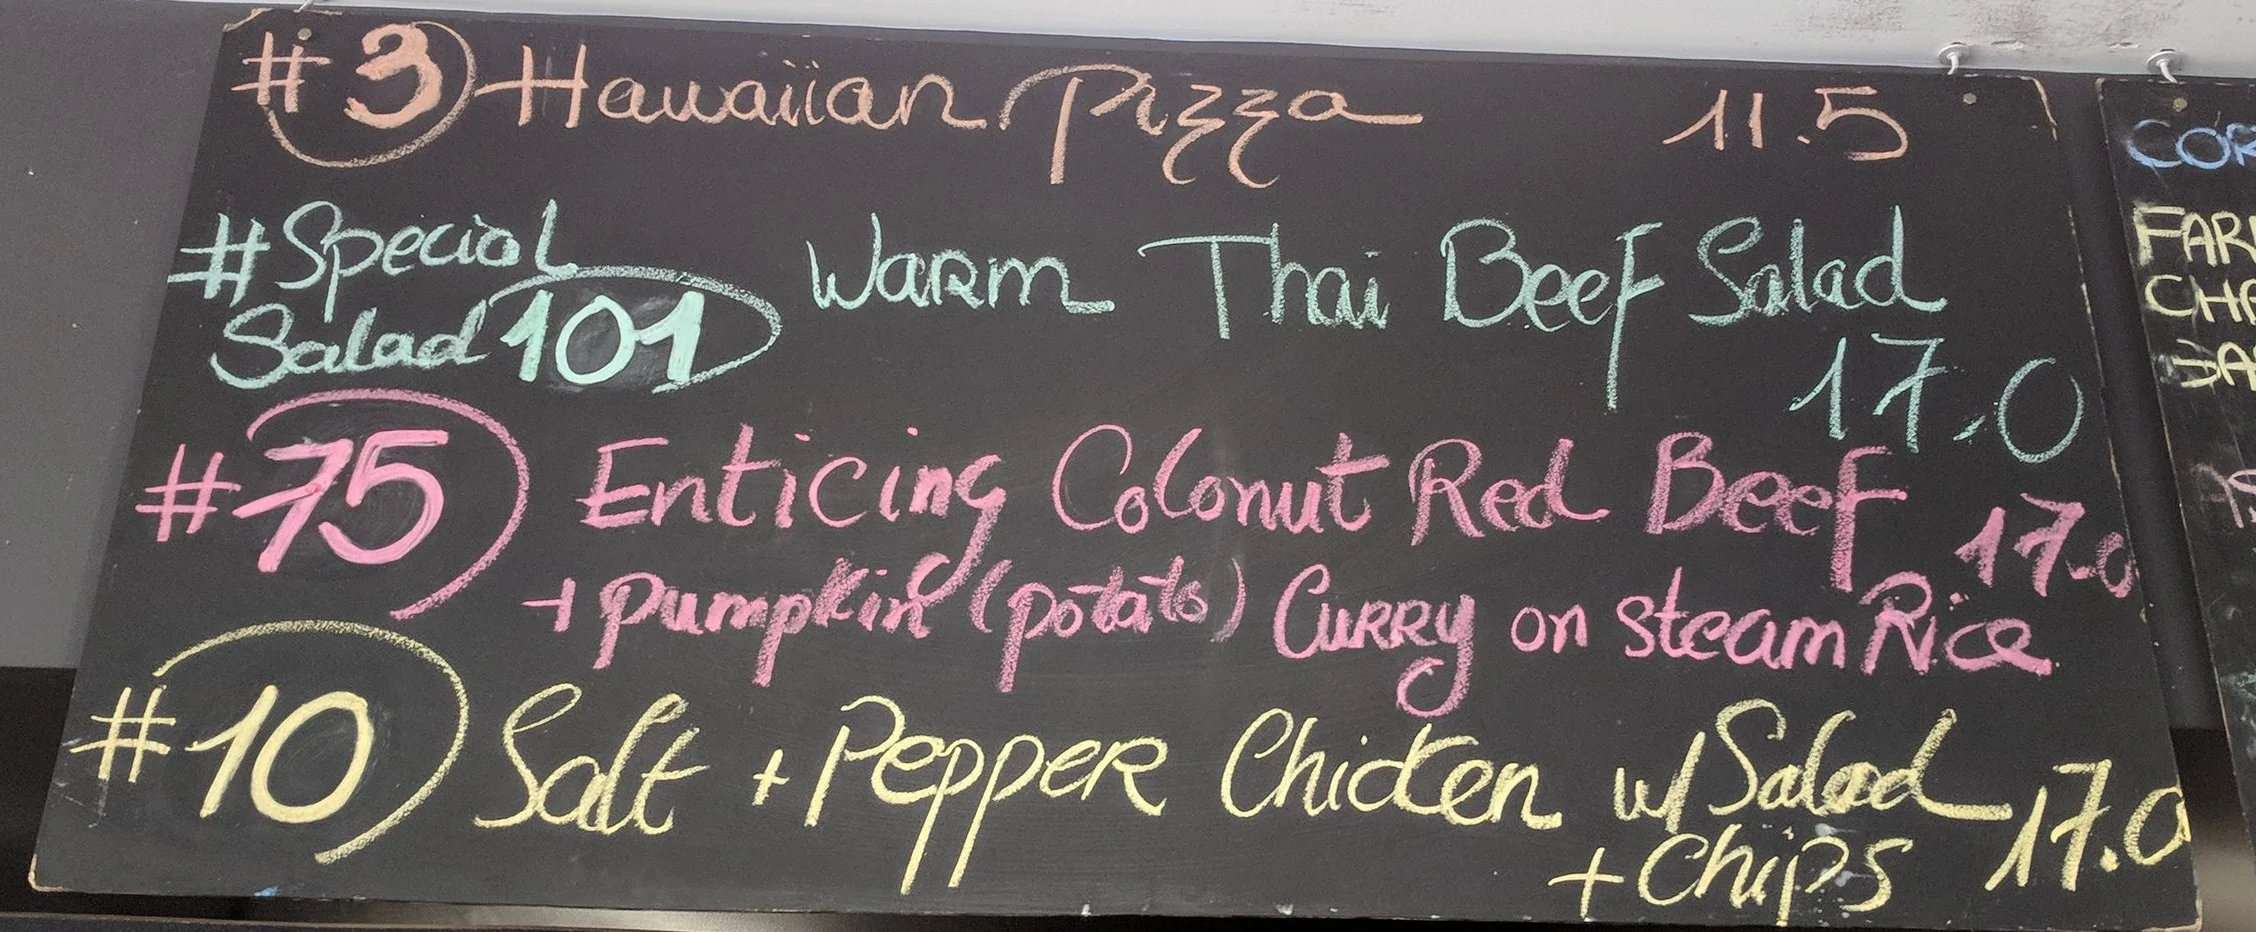 #3 Hawaiian Pizza 11.5
#Special
Salad 101 Warm Thai Beef Salad
17.0
#75 Enticing Coconut Red Beef 17.0
+ Pumpkin (potato) Curry on steam Rice
#10 Salt + Pepper Chicken w/ Salad
+ Chips 17.0
COR
FAR
CHA